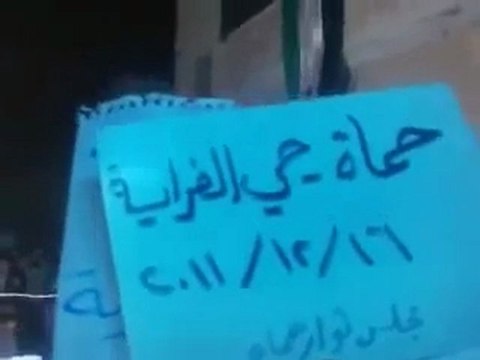 حماة - حي الفراية
٢٠١١/١٢/١٦
مجلس ثوار حماه
ية